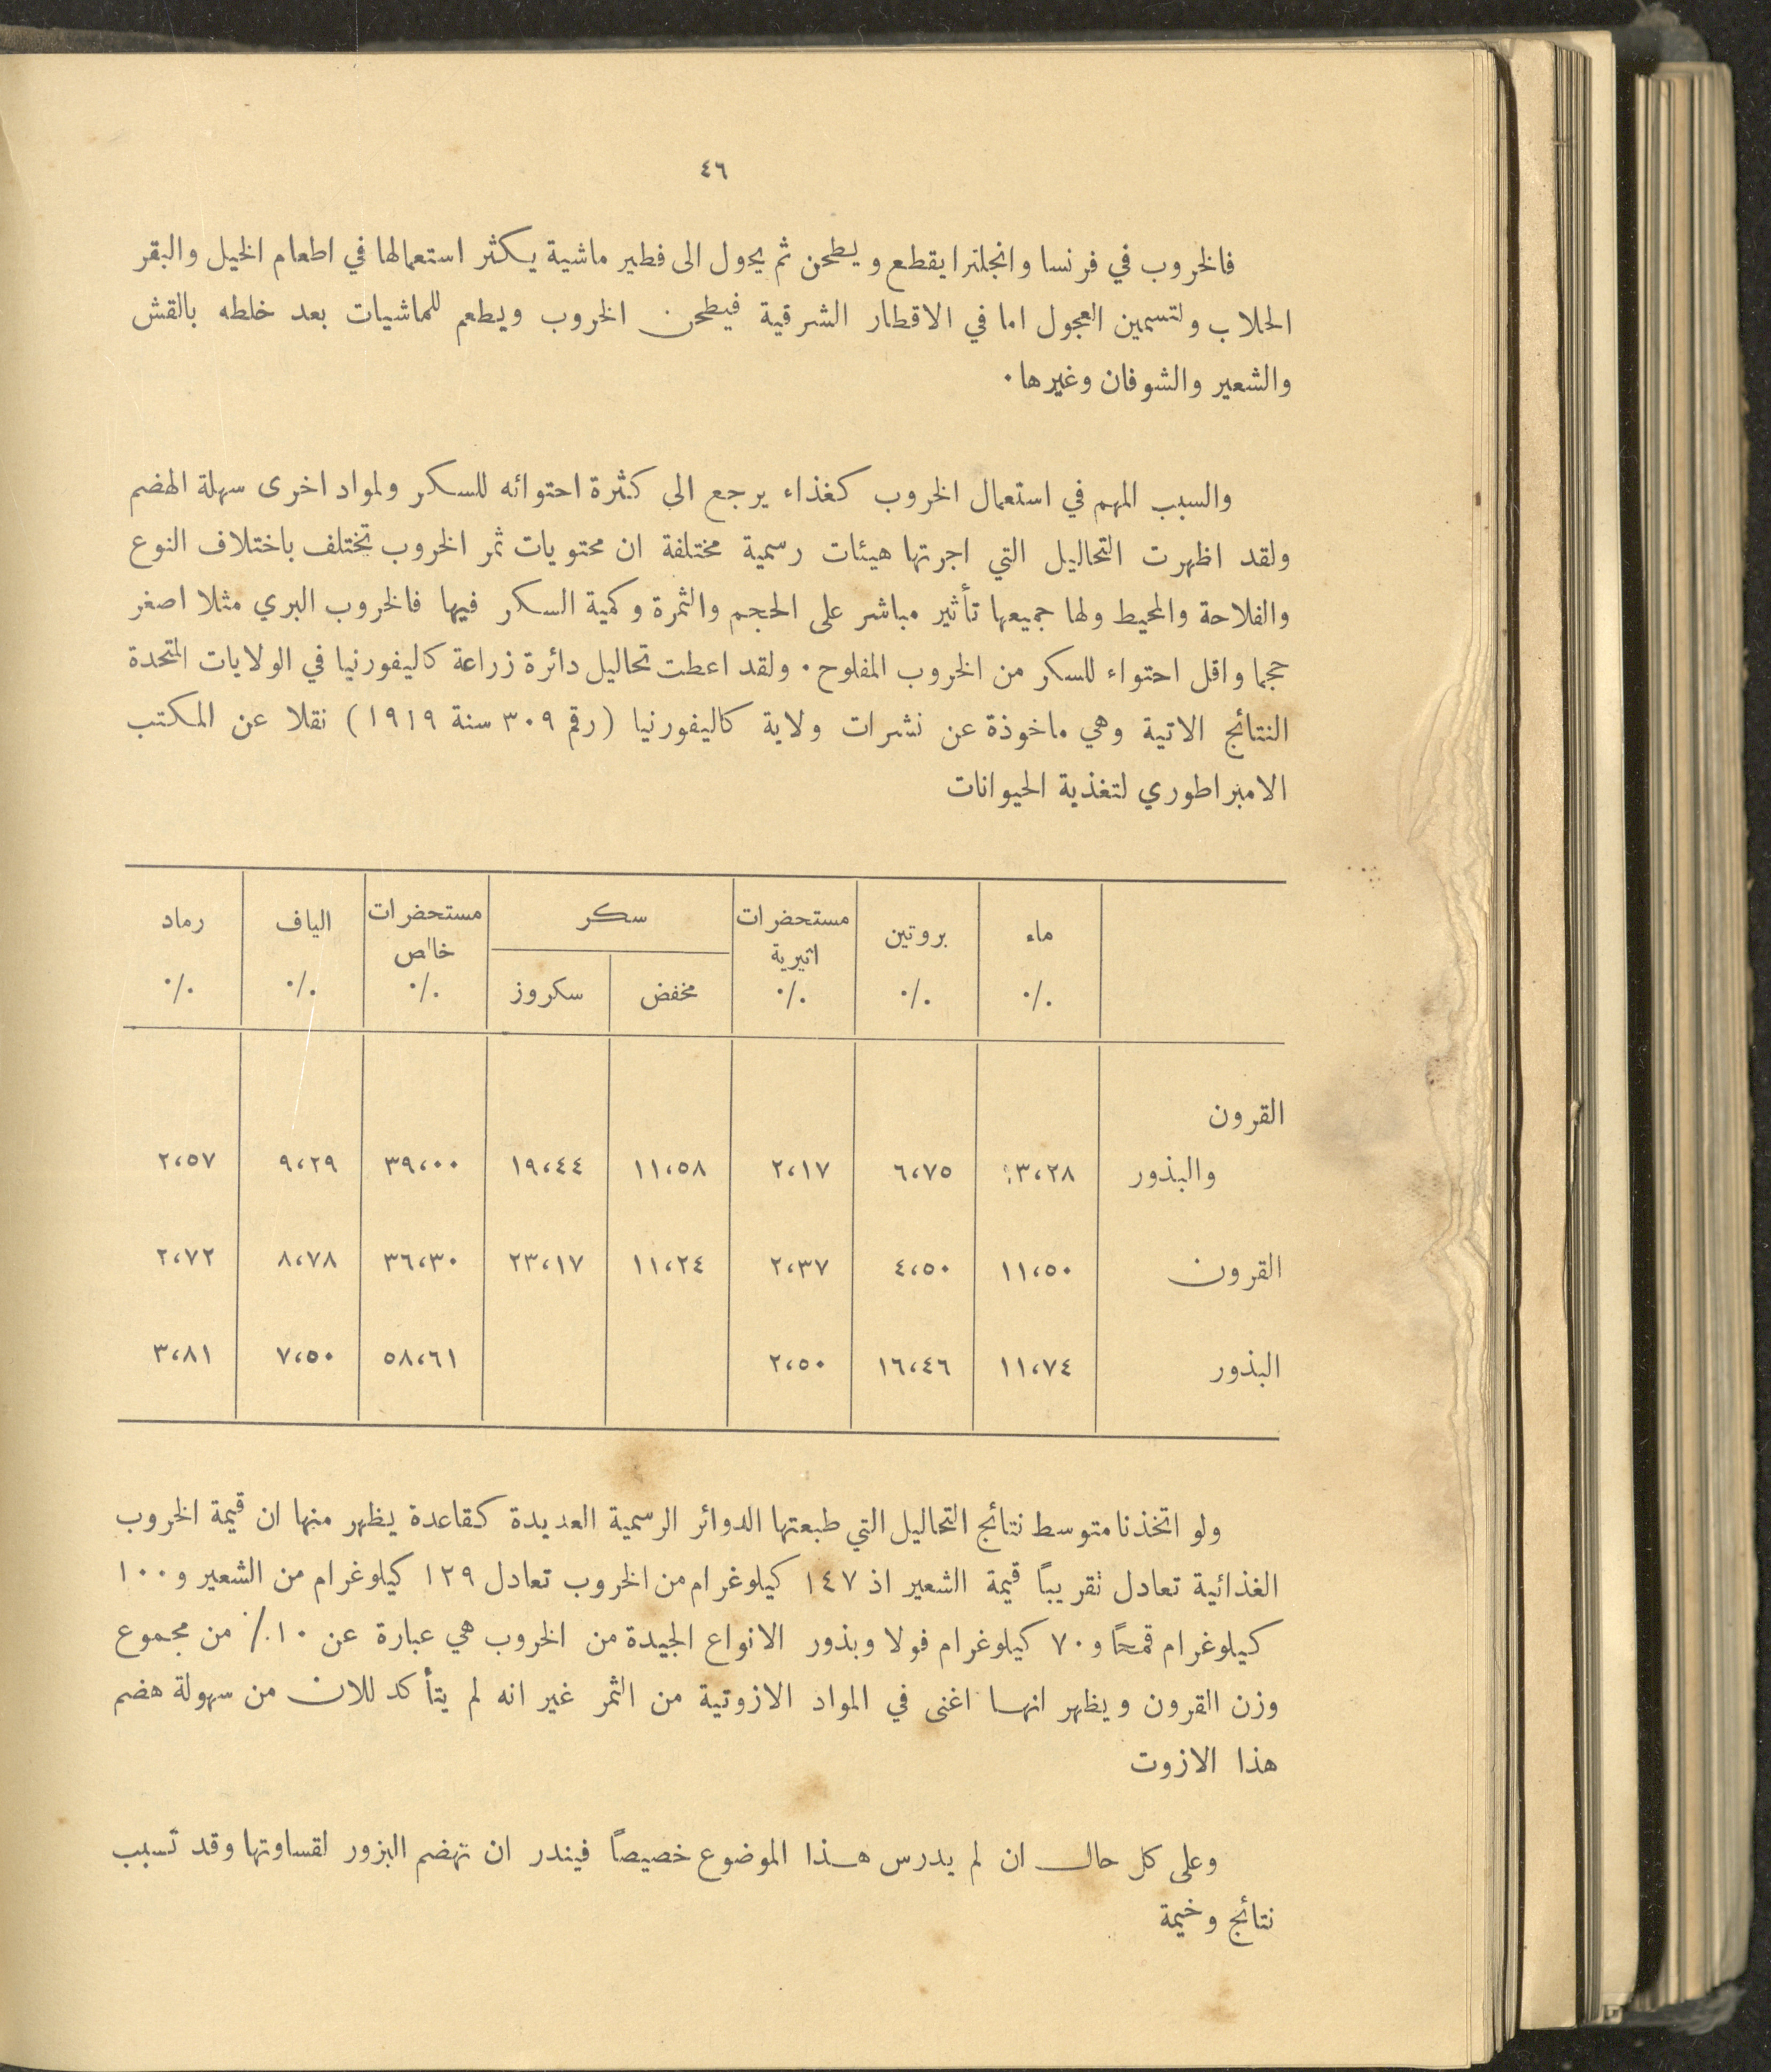 ٤٦
فالخروب في فرنسا وانجلترا يقطع ويطحن ثم يحول الى فطير ماشية يكثر استعمالها في اطعام الخيل والبقر
الحلاب ولتسمين العجول اما في الاقطار الشرقية فيطحن الخروب ويطعم للماشيات بعد خلطه بالقش
والشعير والشوفان وغيرها.
والسبب المهم في استعمال الخروب كغذاء يرجع الى كثرة احتوائه للسكر ولمواد اخرى سهلة الهضم
ولقد اظهرت التحاليل التي اجرتها هيئات رسمية مختلفة ان محتويات ثمر الخروب تختلف باختلاف النوع
والفلاحة والمحيط ولها جميعها تأثير مباشر على الحجم والثمرة وكمية السكر فيها فالخروب البري مثلا اصغر
حجما واقل احتواء للسكر من الخروب المفلوح. ولقد اعطت تحاليل دائرة زراعة كاليفورنيا في الولايات المتحدة
النتائج الاتية وهي ماخوذة عن نشرات ولاية كاليفورنيا (رقم ٣٠٩ سنة ١٩١٩) نقلا عن المكتب
الامبراطوري لتغذية الحيوانات
ماء بروتين مستحضرات اثيرية سكر مستحضرات خالص الياف رماد
٪ ٪ ٪ مخفض سكروز ٪ ٪ ٪
القرون
والبذور ٣،٢٨ ٦،٧٥ ٢،١٧ ١١،٥٨ ١٩،٤٤ ٣٩،٠٠ ٩،٢٩ ٢،٥٧
القرون ١١،٥٠ ٤،٥٠ ٢،٣٧ ١١،٢٤ ٢٣،١٧ ٣٦،٣٠ ٨،٧٨ ٢،٧٢
البذور ١١،٧٤ ١٦،٤٦ ٢،٥٠ ٥٨،٦١ ٧،٥٠ ٣،٨١
ولو اتخذنا متوسط نتائج التحاليل التي طبعتها الدوائر الرسمية العديدة كقاعدة يظهر منها ان قيمة الخروب
الغذائية تعادل تقريباً قيمة الشعير اذ ١٤٧ كيلوغرام من الخروب تعادل ١٢٩ كيلوغرام من الشعير و ١٠٠
كيلوغرام قمحاً و ٧٠ كيلوغرام فولا وبذور الانواع الجيدة من الخروب هي عبارة عن ١٠٪ من مجموع
وزن القرون ويظهر انها اغنى في المواد الازوتية من الثمر غير انه لم يتأكد للان من سهولة هضم
هذا الازوت
وعلى كل حال ان لم يدرس هذا الموضوع خصيصاً فيندر ان تهضم البزور لقساوتها وقد تسبب
نتائج وخيمة